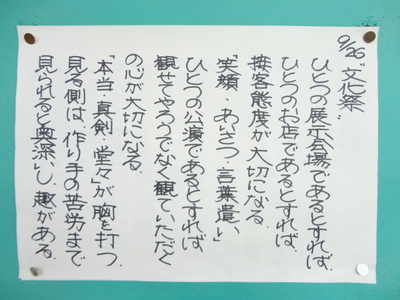 9/26 "文化祭"
ひとつの展示会場であるとすれば、
ひとつのお店であるとすれば、
接客態度が大切になる。
「笑顔・あいさつ・言葉遣い」
ひとつの公演であるとすれば、
観せてやろうでなく観ていただく
の心が大切になる。
「本当・真剣・堂々」が胸を打つ。
見る側は、作り手の苦労まで
見られると奥深いし、趣がある。